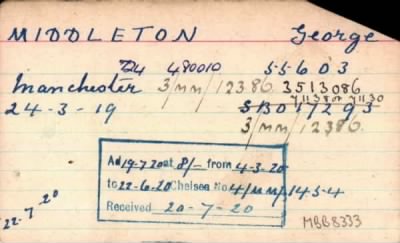 MIDDLETON George
724 480010 55603
Manchester 3/MM/12386 3513086
24-3-19
3/MM/12386
Ad 19-7-20 at 8/- from 4-3-20
to 22-6-20 Chelsea No 4/MM/1454
Received 20-7-20
22.7.20
MBB8333